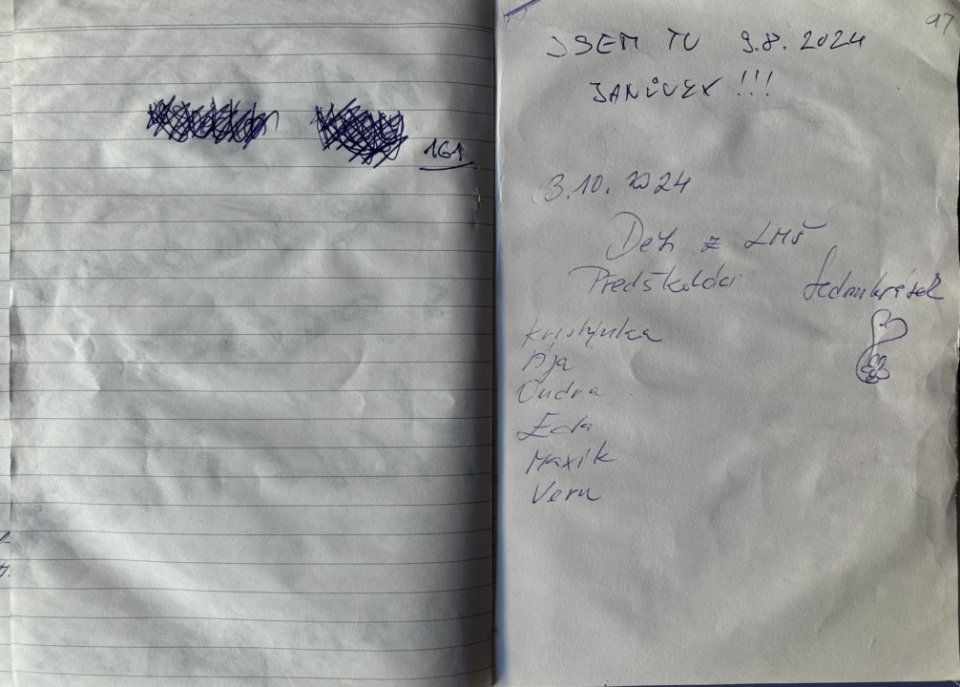 161
97
JSEM TU 9.8.2024
JANŮVEK !!!
3.10.2024
Děti z LMŠ
Předškoláci Sedmikrásek
Kristýnka
Ája
Ondra
Eda
Maxík
Veru